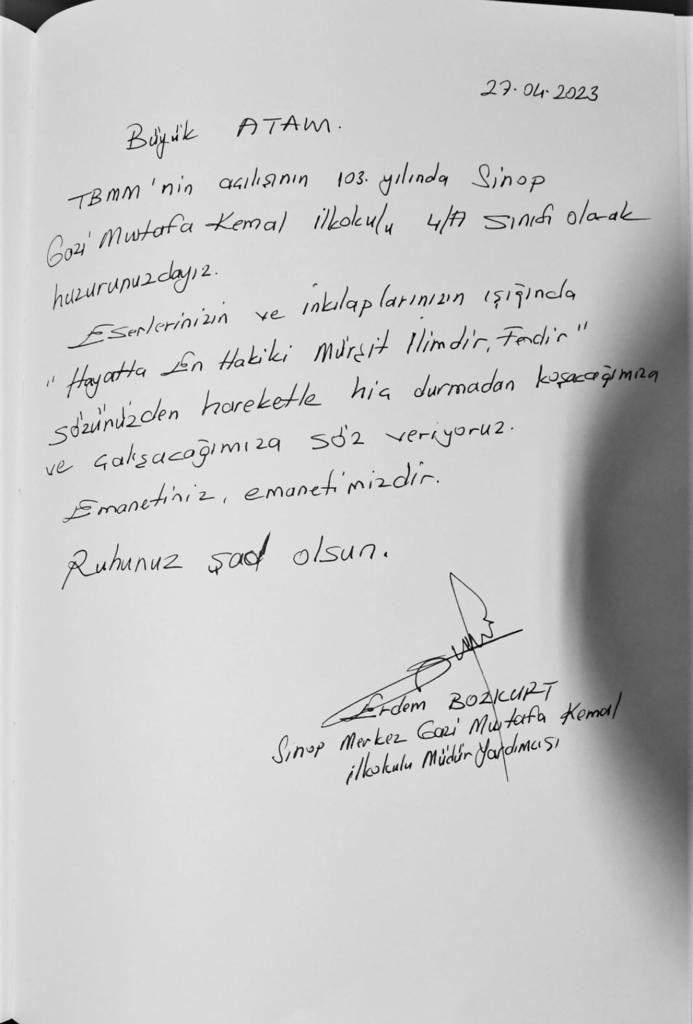 27.04.2023
Büyük ATAM.
TBMM'nin açılışının 103. yılında Sinop
Gazi Mustafa Kemal İlkokulu 4/A sınıfı olarak
huzurunuzdayız.
Eserlerinizin ve inkılaplarınızın ışığında
"Hayatta En Hakiki Mürşit İlimdir, Fendir"
sözünüzden hareketle hiç durmadan koşacağımıza
ve çalışacağımıza söz veriyoruz.
Emanetiniz, emanetimizdir.
Ruhunuz şad olsun.
Erdem BOZKURT
Sinop Merkez Gazi Mustafa Kemal
İlkokulu Müdür Yardımcısı